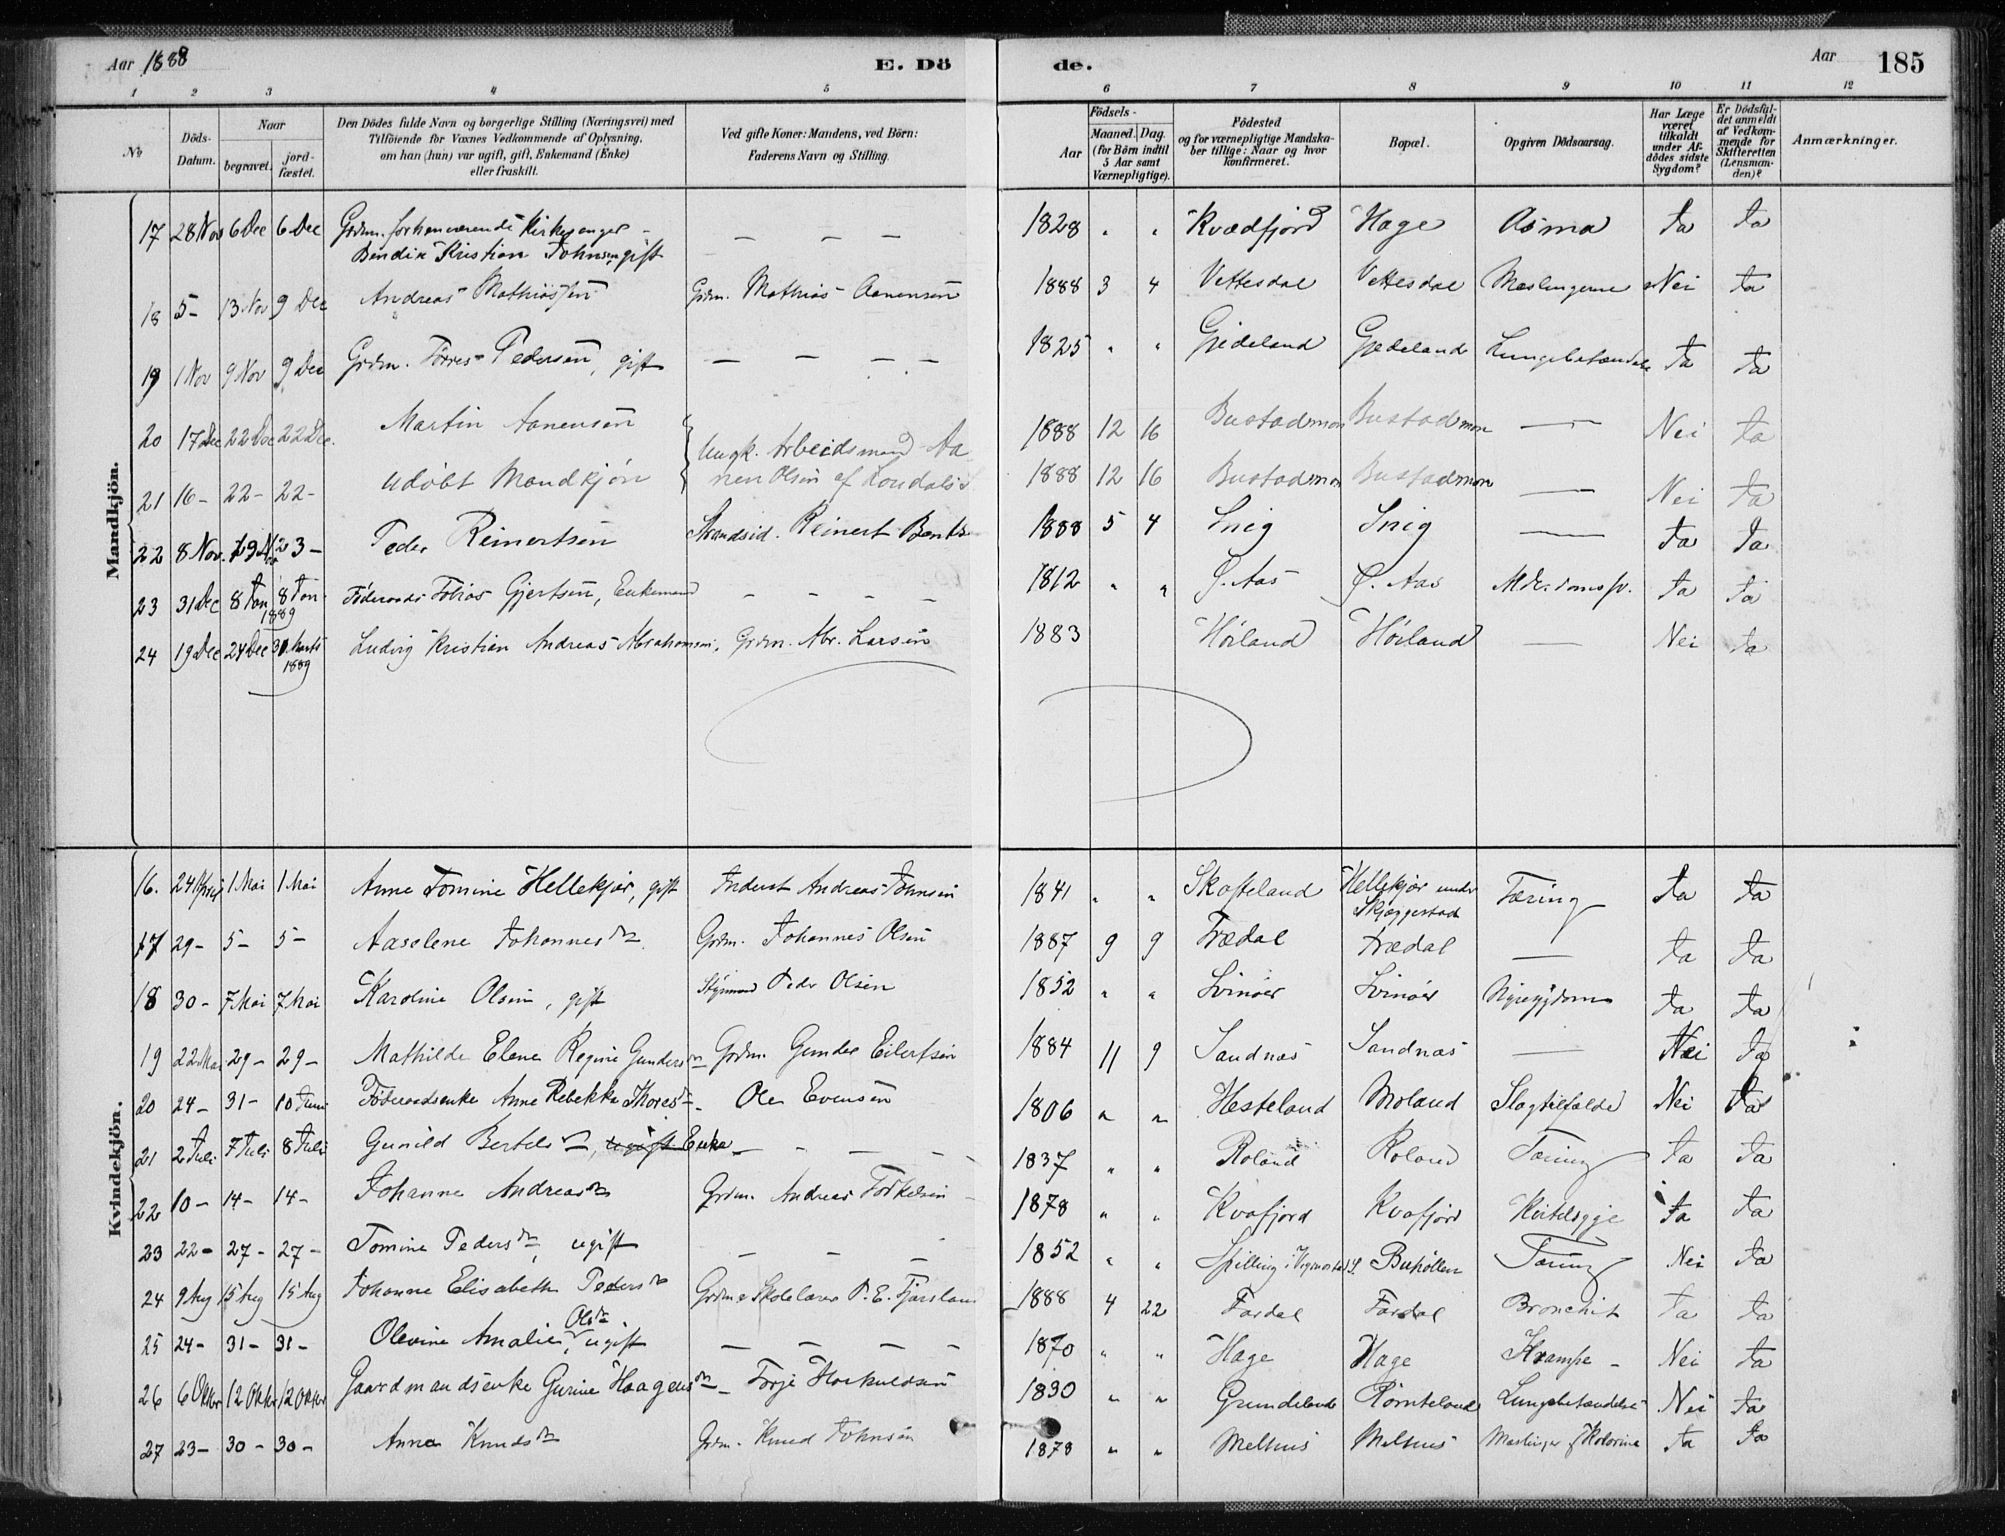 Aar 1888 E. Dö de. Aar 185
1 2 3 4 5 6 7 8 9 10 11 12
No Döds-Datum. Naar begravet. jord-fæstet. Den Dödes fulde Navn og borgerlige Stilling (Næringsvei) med Tilföiende for Voxnes Vedkommende af Oplysning, om han (hun) var ugift, gift, Enkemand (Enke) eller fraskilt. Ved gifte Koner: Mandens, ved Börn: Faderens Navn og Stilling. Födsels- Aar Maaned. Dag. (for Börn indtil 5 Aar samt Værnepligtige). Födested og for værnepligtige Mandskaber tillige: Naar og hvor konfirmeret. Bopæl. Opgiven Dödsaarsag. Har Læge været tilkaldt under Afdödes sidste Sygdom? Er Dödsfaldet anmeldt af Vedkommende for Skifteretten (Lensmanden)? Anmærkninger.
Mandkjön.
17 28 Nov 6 Dec 6 Dec Grdm. forhenværende Kirkesanger - — — — 1828 " " Kvædfjord Hage Asma Ja Ja
Bendix Kristian Johnsen, gift
18 5 - 13 Nov 9 Dec Andreas Mathiassen Grdm. Mathias Aanensen 1888 3 4 Vettesdal Vettesdal Mæslingerne Nei Ja
19 1 Nov 9 Nov 9 Dec Grdm. Tørres Pedersen, gift — — — — 1825 " " Gjedeland Gjedeland Lungebetændelse Ja Ja
20 17 Dec 22 Dec 22 Dec. Martin Aanensen Ungk. Arbeidsmand Aa- 1888 12 16 Bustadmon Bustadmon — Nei Ja
21 16 - 22 - 22 - udøbt Mandkjøn nen Olsen af 1888 12 16 Bustadmon Bustadmon — Nei Ja
22 8 Nov. 23 - Peder Reinertsen Strandsid. Reinert Bents 1888 5 4 Snig Snig — Ja Ja
23 31 Dec 8 Jan 8 Jan 1889 Føderaads Tobias Gjertsen, Enkemand - - - - 1812 " " Ø. Aas Ø. Aas Ja Ja
24 19 Dec 24 Dec 31 Marts 1889 Ludvig Kristian Andreas Abrahamsen, Grdm. Abr. Larsen 1883 Høiland Høiland — Nei Ja
Kvindekjön.
16. 24 April 1 Mai 1 Mai Anne Tomine Hellekjær, gift Inderst Andreas Johnsen 1841 " " Skofteland Hellekjær under Skjæggestad Tæring Ja Ja
17 29 - 5 - 5 - Aaselene Johannesdr. Grdm. Johannes Olsen 1887 9 9 Trædal Trædal — Ja Ja
18 30 - 7 Mai 7 Mai Karoline Olsen, gift Styrmand Peder Olsen 1852 " " Svinøer Svinøer Nyresygdom Ja Ja
19 22 Mai 29 - 29 - Mathilde Elene Regine Gundersdr Grdm. Gunder Eilertsen 1884 11 9 Sandnæs Sandnæs — Nei Ja
20 24 - 31 - 10 Juni Føderaadsenke Anne Rebekka Thoresdr. Ole Evensen 1806 " " Hesteland Moland Slagtilfælde Nei Ja
21 2 Juli 7 Juli 8 Juli Gunild Bertelsdr, ugift Enke - - - - 1837 " " Roland Roland Tæring Ja Ja
22 10 - 14 - 14 - Johanne Andreasdr Grdm. Andreas Torkelsen 1878 " " Kvafjord Kvafjord Ja Ja
23 22 - 27 - 27 - Tomine Pedersdr, ugift — — — 1852 " " Spilling i Vigmostad S. Buhøllen Tæring Nei Ja
24 9 Aug 15 Aug 15 Aug Johanne Elisabeth Pedersdr Grdm & Skolelærer P. E. Fjærsland 1888 4 22 Fardal Fardal Bronchit Ja Ja
25 24 - 31 - 31 - Olevine Amalie Olsdr, ugift — — — — 1870 " " Hage Hage Krampe - Nei Ja
26 6 Oktbr 12 Oktbr 12 Oktbr Gaardmandsenke Gurine Haagensdr - Terje Hoskuldsen 1830 " " Grundeland Rømteland Lungebetændelse Nei Ja
27 23 - 30 - 30 - Anna Knudsdr Grdm. Knud Johnsen 1878 " " Melhus Melhus Mæslinger Ja Ja